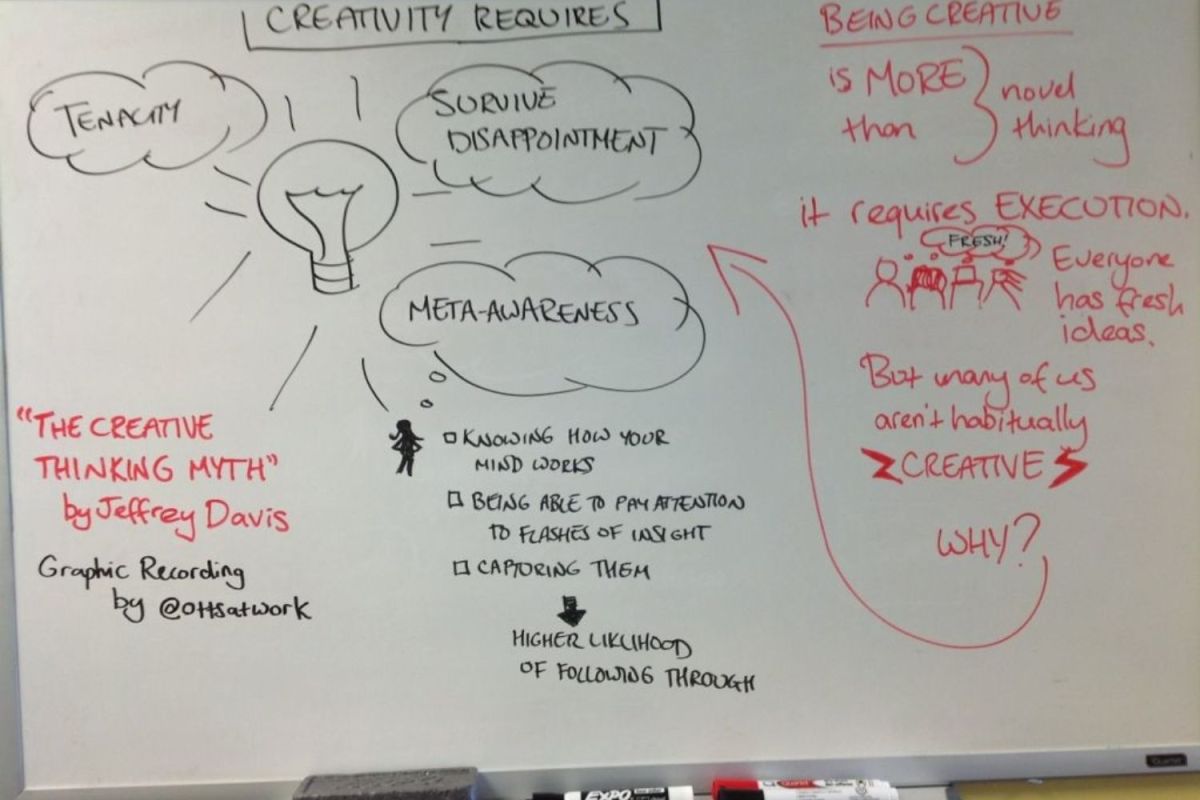 CREATIVITY REQUIRES
TENACITY
SURVIVE
DISAPPOINTMENT
META-AWARENESS
KNOWING HOW YOUR
MIND WORKS
BEING ABLE TO PAY ATTENTION
TO FLASHES OF INSIGHT
CAPTURING THEM
HIGHER LIKLIHOOD
OF FOLLOWING THROUGH
"THE CREATIVE
THINKING MYTH"
by Jeffrey Davis
Graphic Recording
by @ottsatwork
BEING CREATIVE
is MORE
than
novel
thinking
it requires EXECUTION.
FRESH!
Everyone
has fresh
ideas.
But many of us
aren't habitually
CREATIVE
WHY?
EXPO
Quartet